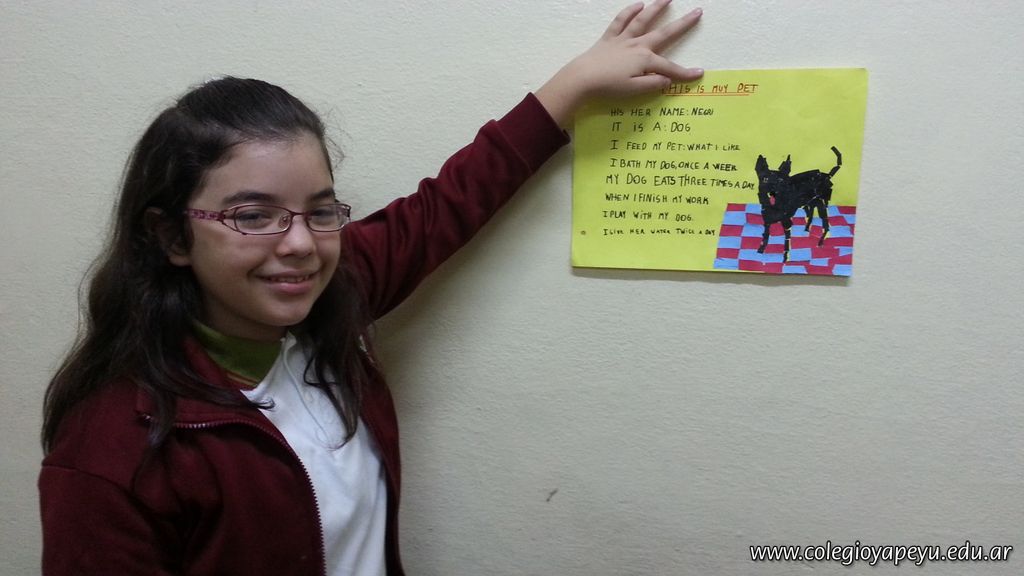 THIS IS MUY PET
HIS HER NAME: NEGRI
IT IS A: DOG
I FEED MY PET: WHAT I LIKE
I BATH MY DOG, ONCE A WEEK
MY DOG EATS THREE TIMES A DAY
WHEN I FINISH MY WORK
I PLAY WITH MY DOG.
I GIVE HER WATER TWICE A DAY
www.colegioyapeyu.edu.ar